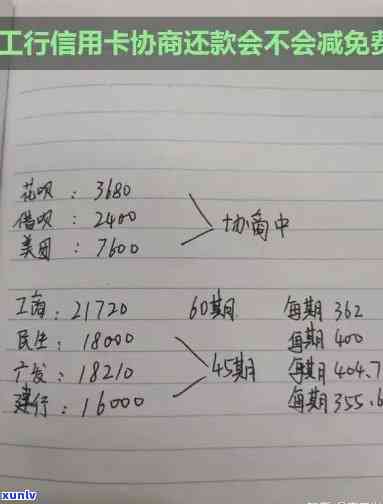 工行信用卡协商还款会不会减免费
花呗：3680
借呗：2400 协商中
美团：7600
工商：21720 60期 每期 362
民生：18000 每期 400
广发：18210 45期 每期 404.7
建行：16000 每期 355.6
xunlv